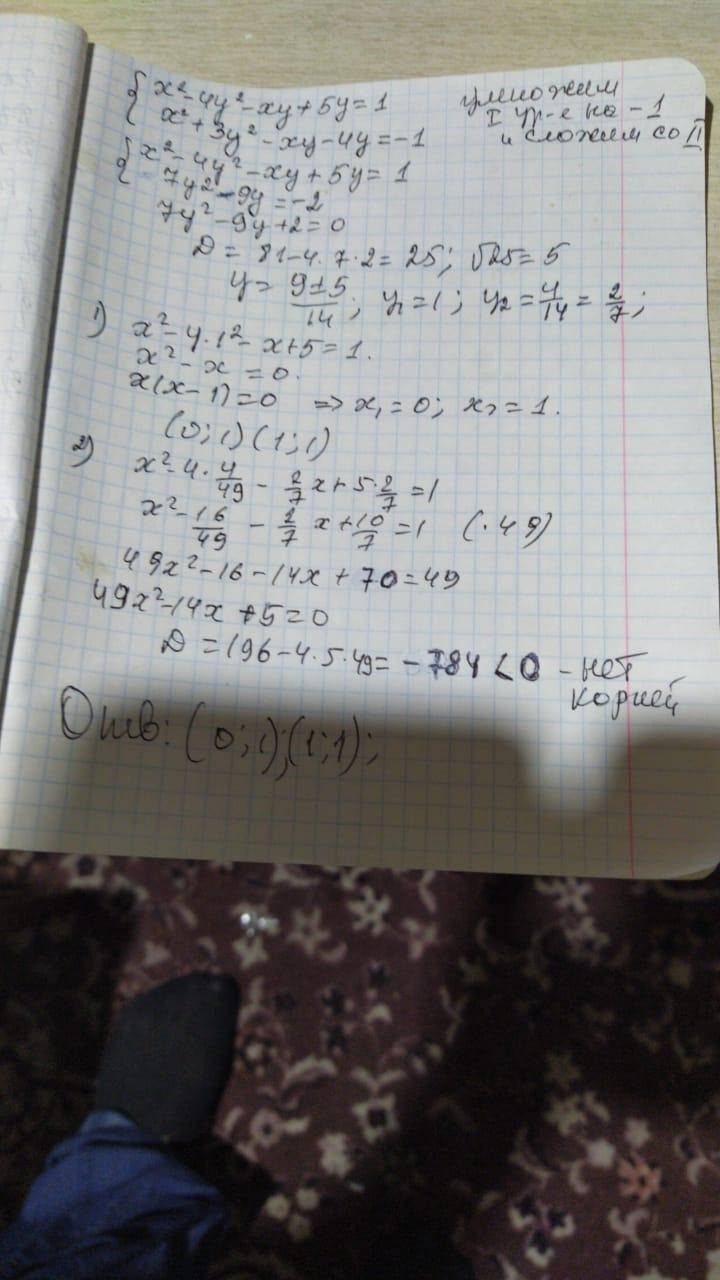 { x² - 4y² - xy + 5y = 1 умножим
x² + 3y² - xy - 4y = -1 I ур-е на -1
и сложим со II
{ x² - 4y² - xy + 5y = 1
7y² - 9y = -2
7y² - 9y + 2 = 0
D = 81 - 4 · 7 · 2 = 25; √25 = 5
y = (9±5)/14; y₁ = 1; y₂ = 4/14 = 2/7;
1) x² - 4 · 1² - x + 5 = 1.
x² - x = 0.
x(x - 1) = 0 => x₁ = 0; x₂ = 1.
(0; 1) (1; 1)
2) x² - 4 · 4/49 - 2/7 x + 5 · 2/7 = 1
x² - 16/49 - 2/7 x + 10/7 = 1 (· 49)
49x² - 16 - 14x + 70 = 49
49x² - 14x + 5 = 0
D = 196 - 4 · 5 · 49 = -784 < 0 - нет
корней
Отв: (0; 1); (1; 1);